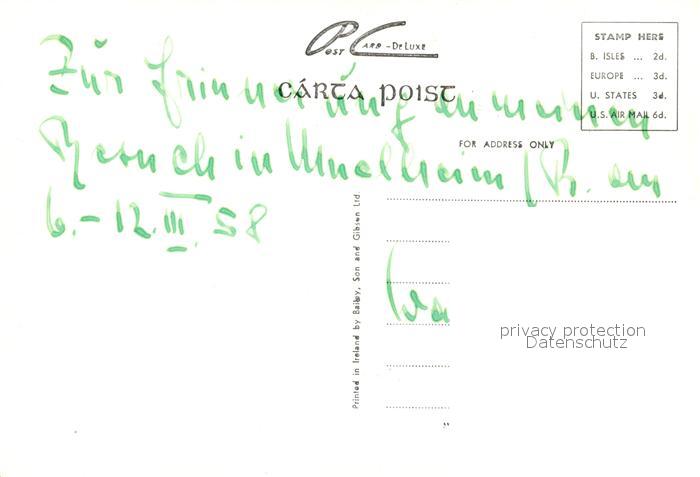 Post Card - De Luxe
CÁRTA POIST
STAMP HERE
B. ISLES ... 2d.
EUROPE ... 3d.
U. STATES 3d.
U.S. AIR MAIL 6d.
FOR ADDRESS ONLY
Zur Erinnerung an meinen
Besuch in Muelheim / R. am
6.-12. III. 58
Printed in Ireland by Bailey, Son and Gibson Ltd.
privacy protection
Datenschutz